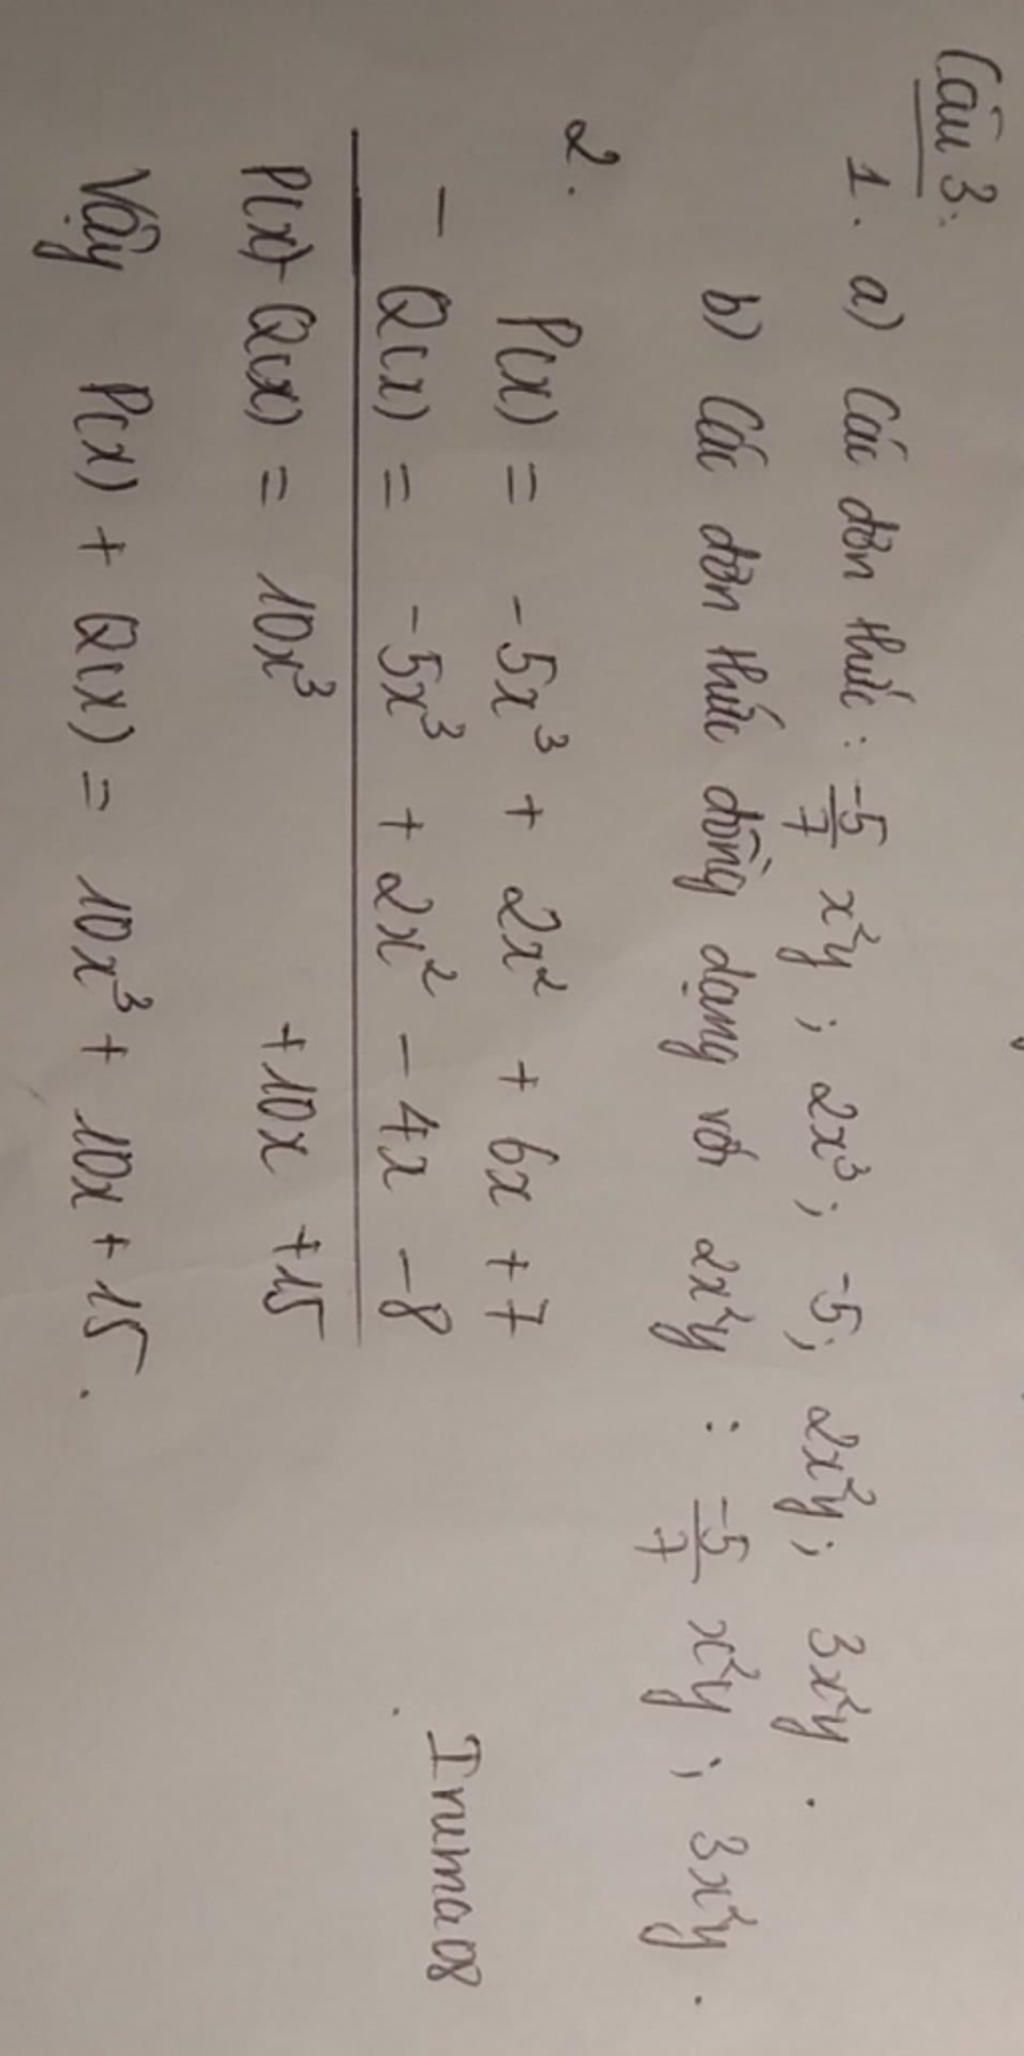 Câu 3:
1. a) Các đơn thức: -5/7 x²y; 2x³; -5; 2x²y; 3x²y.
b) Các đơn thức đồng dạng với 2x²y: -5/7 x²y; 3x²y.
2. P(x) = -5x³ + 2x² + 6x + 7
- Q(x) = -5x³ + 2x² - 4x - 8
P(x) - Q(x) = 10x³ +10x +15
Vậy P(x) + Q(x) = 10x³ + 10x + 15.
Iruma08